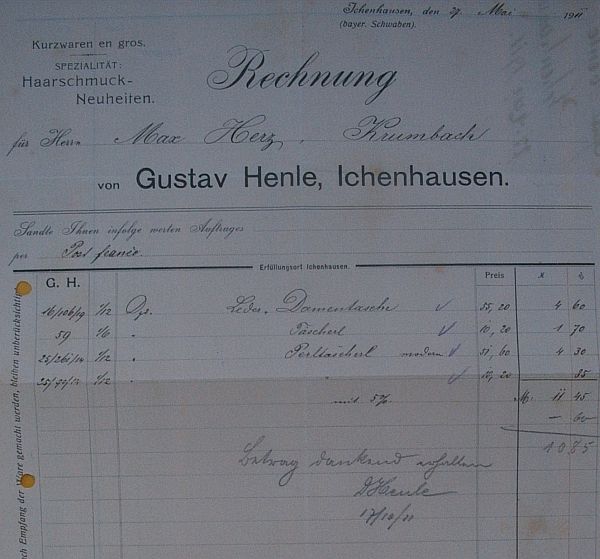 Ichenhausen, den 27. Mai 1911
(bayer. Schwaben.)
Kurzwaren en gros.
SPEZIALITÄT:
Haarschmuck-
Neuheiten.
Rechnung
für Herrn Max Herz, Krumbach
von Gustav Henle, Ichenhausen.
Sandte Ihnen infolge werten Auftrages
per Post franco.
Erfüllungsort Ichenhausen.
G. H. Preis
1/12 Dz. Leder. Damentasche 55,20 4 60
59 1/6 " Täscherl 10,20 1 70
1/12 " Perltäscherl modern 51,60 4 30
1/12 " " 10,20 85
mit 5% M. 11 45
– 60
10 85
Betrag dankend erhalten
Henle
17/10/11
nach Empfang der Ware gemacht werden, bleiben unberücksichtigt